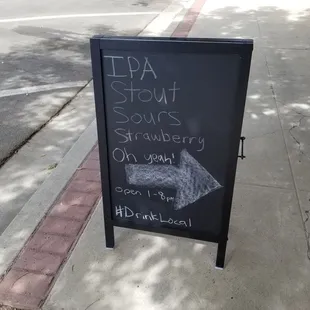 IPA
Stout
Sours
Strawberry
Oh yeah!
open 1-8pm
#DrinkLocal